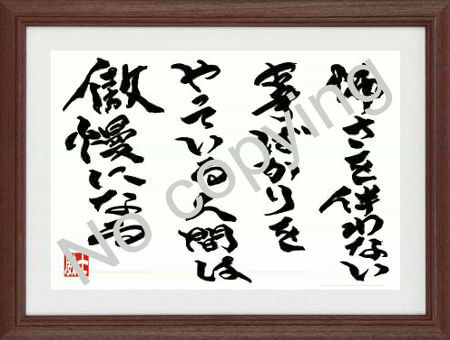 怖さを伴わない
事ばかりを
やっている人間は
傲慢になる
No copying